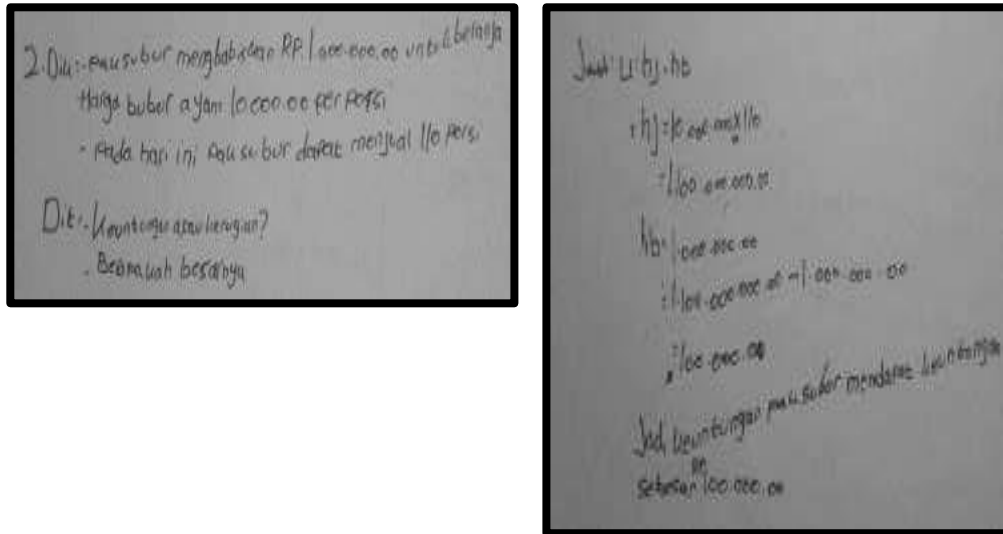 2. Dik: - Pak subur menghabiskan RP. 1.000.000.00 untuk belanja
Harga bubur ayam 10.000.00 per Porsi
- Pada hari ini Pak subur dapat menjual 110 Porsi
Dit: - Keuntungan atau kerugian?
- Berapakah besarnya
Jawab: U: hj - hb
: hj = 10.000.00 x 110
= 1.100.000.00
hb = 1.000.000.00
= 1.100.000.00 - 1.000.000.00
= 100.000.00
Jadi keuntungan pak subur mendapat keuntungan
sebesar RP 100.000.00